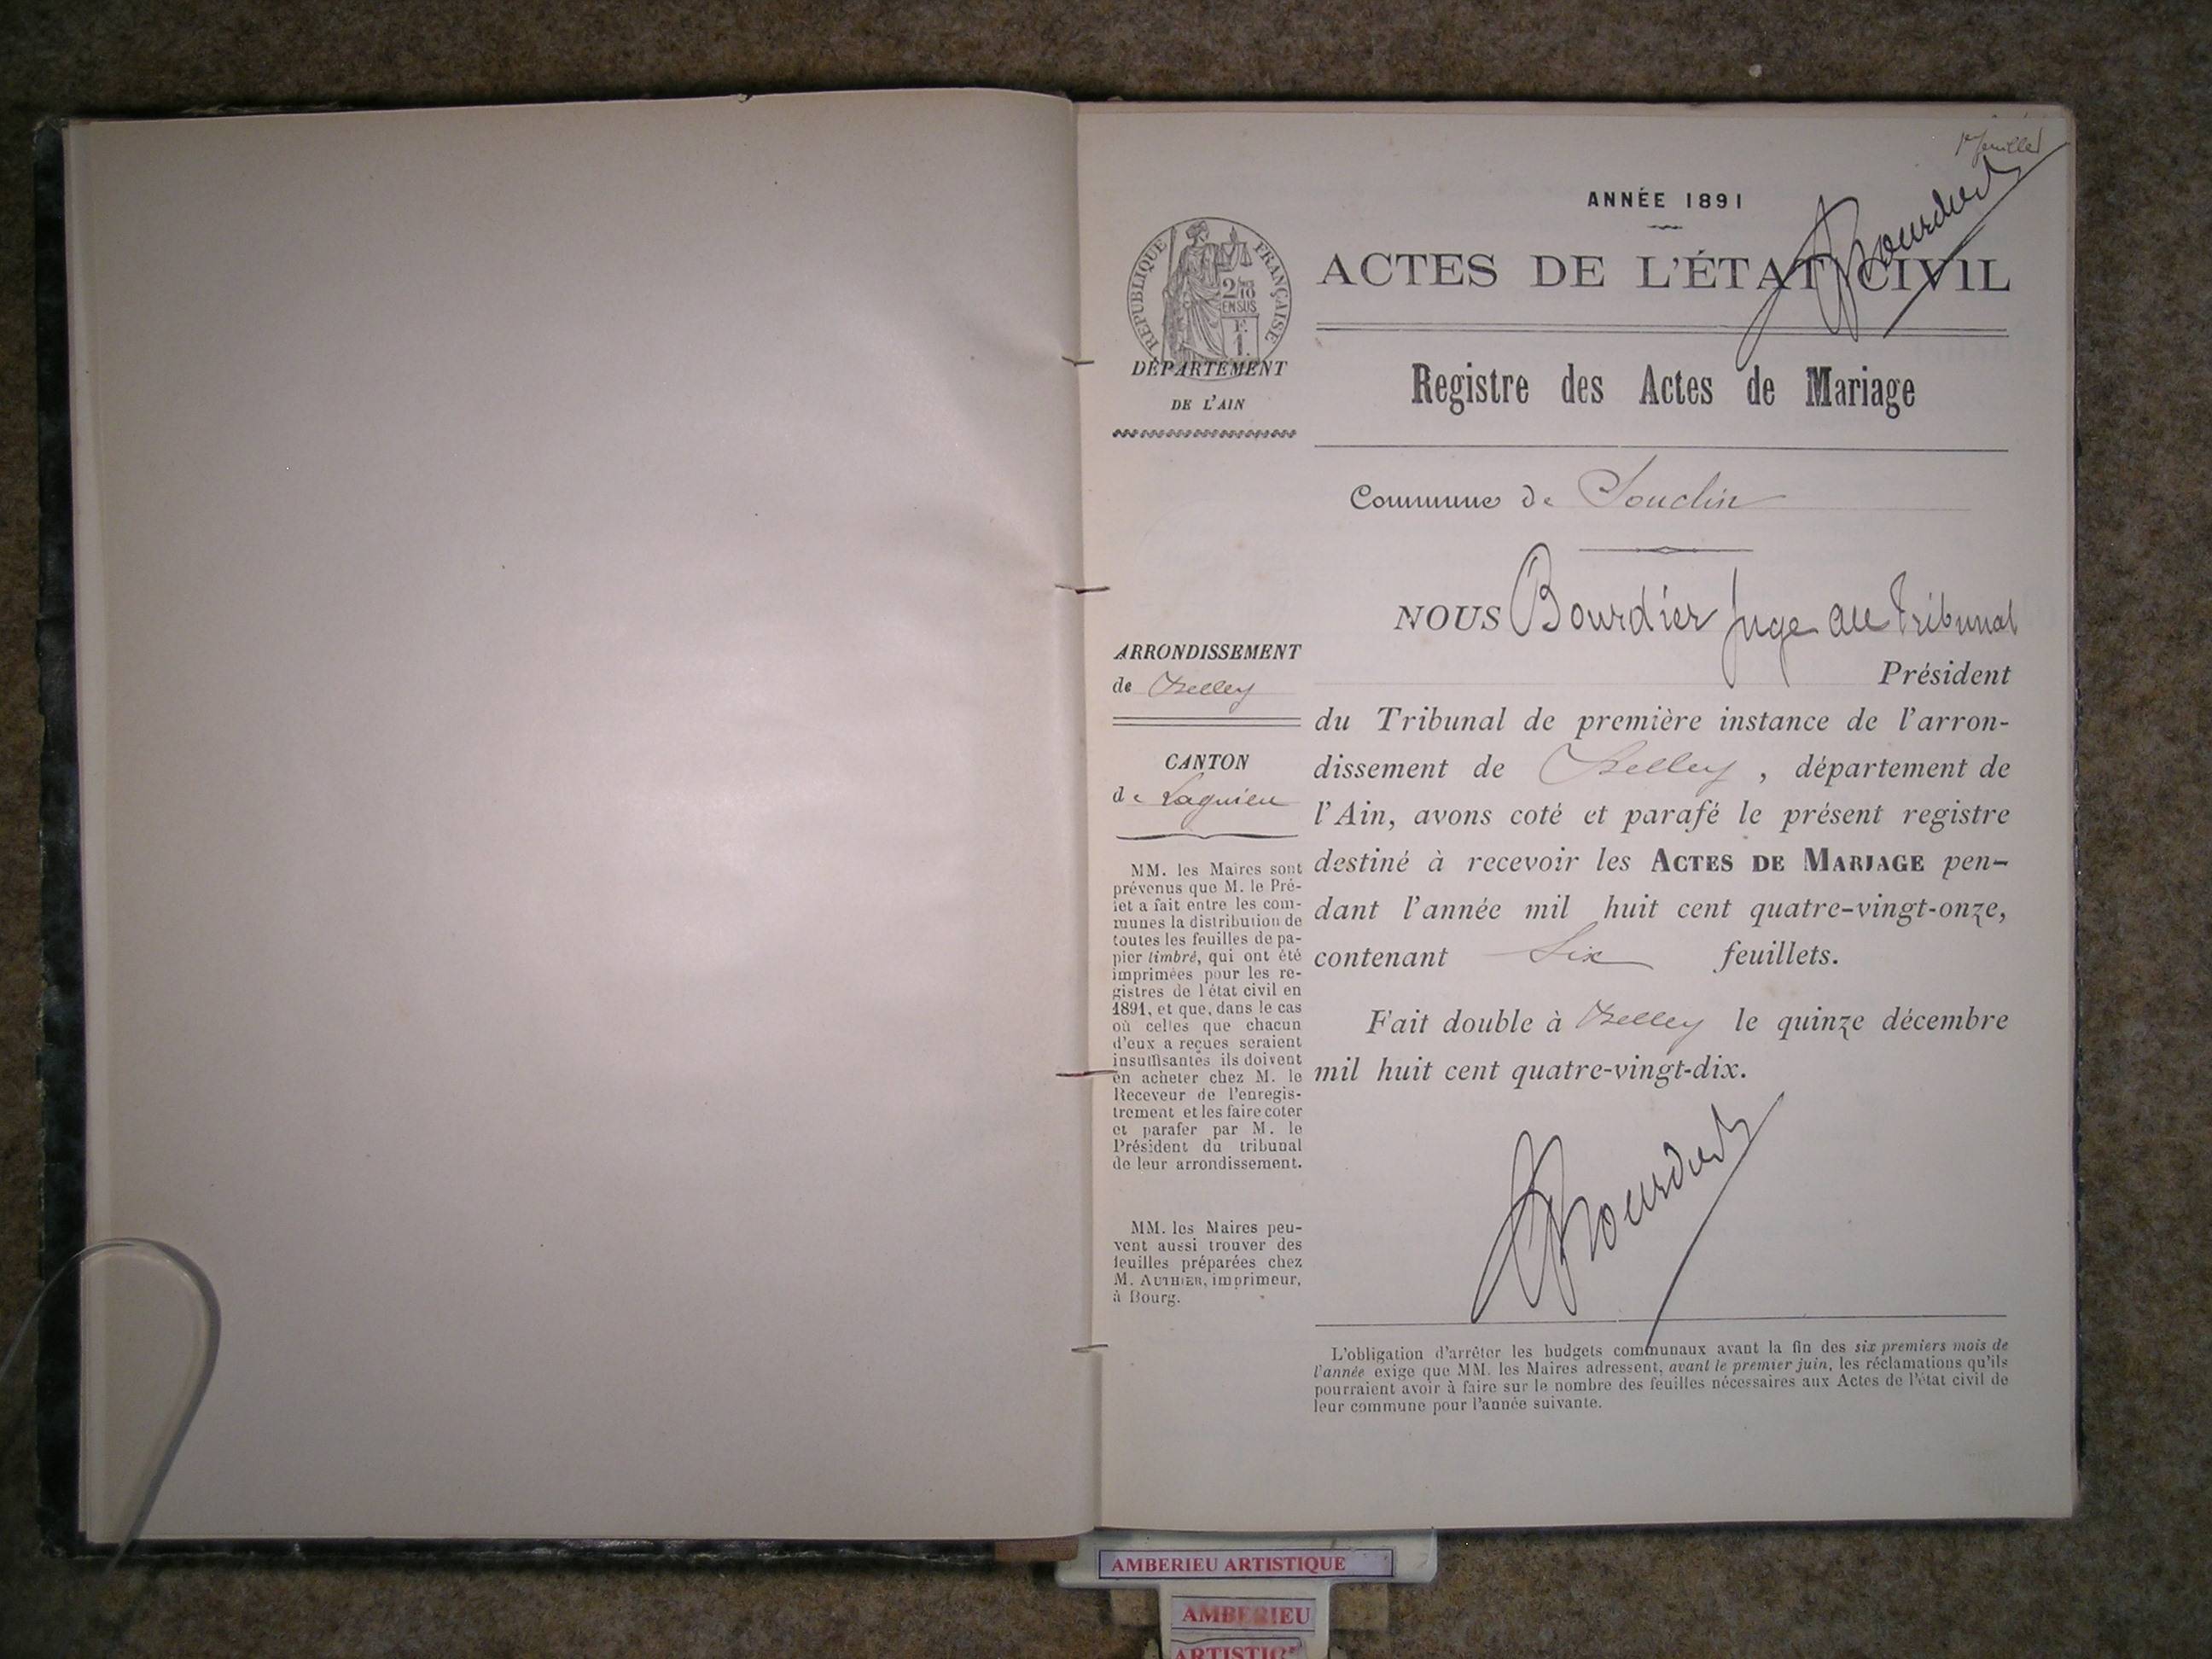 1er feuillet
ANNÉE 1891
ACTES DE L'ÉTAT CIVIL
Registre des Actes de Mariage
Commune de Souclin
NOUS Bourdier Juge au Tribunal
Président
du Tribunal de première instance de l'arron-
dissement de Belley, département de
l'Ain, avons coté et parafé le présent registre
destiné à recevoir les ACTES DE MARIAGE pen-
dant l'année mil huit cent quatre-vingt-onze,
contenant Six feuillets.
Fait double à Belley le quinze décembre
mil huit cent quatre-vingt-dix.
L'obligation d'arrêter les budgets communaux avant la fin des six premiers mois de
l'année exige que MM. les Maires adressent, avant le premier juin, les réclamations qu'ils
pourraient avoir à faire sur le nombre des feuilles nécessaires aux Actes de l'état civil de
leur commune pour l'année suivante.
RÉPUBLIQUE FRANÇAISE
2/10
EN SUS
F.
1.
DÉPARTEMENT
DE L'AIN
ARRONDISSEMENT
de Belley
CANTON
de Lagnieu
MM. les Maires sont
prévenus que M. le Pré-
fet a fait entre les com-
munes la distribution de
toutes les feuilles de pa-
pier timbré, qui ont été
imprimées pour les re-
gistres de l'état civil en
1891, et que, dans le cas
où celles que chacun
d'eux a reçues seraient
insuffisantes ils doivent
en acheter chez M. le
Receveur de l'enregis-
trement et les faire coter
et parafer par M. le
Président du tribunal
de leur arrondissement.
MM. les Maires peu-
vent aussi trouver des
feuilles préparées chez
M. AUTHIER, imprimeur,
à Bourg.
AMBERIEU ARTISTIQUE
AMBERIEU